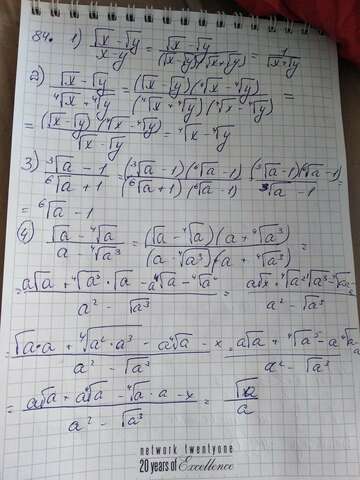 84. 1) √x - √y / x - y = √x - √y / (√x - √y)(√x + √y) = 1 / √x + √y
2) √x - √y / ⁴√x + ⁴√y = (√x - √y)(⁴√x - ⁴√y) / (⁴√x + ⁴√y)(⁴√x - ⁴√y) =
= (√x - √y)(⁴√x - ⁴√y) / √x - √y = ⁴√x - ⁴√y
3) ³√a - 1 / ⁶√a + 1 = (³√a - 1)(⁶√a - 1) / (⁶√a + 1)(⁶√a - 1) = (³√a - 1)(⁶√a - 1) / ³√a - 1 =
= ⁶√a - 1
4) √a - ⁴√a / a - ⁴√a³ = (√a - ⁴√a)(a + ⁴√a³) / (a - ⁴√a³)(a + ⁴√a³) =
= a√a + ⁴√a³ · √a - a⁴√a - ⁴√a⁴ / a² - √a³ =
= √a · a + ⁴√a² · a³ - a⁴√a - x / a² - √a³ =
= a√a + a⁴√a - ⁴√a · a - x / a² - √a³ = √a / a
network twentyone
20 years of Excellence